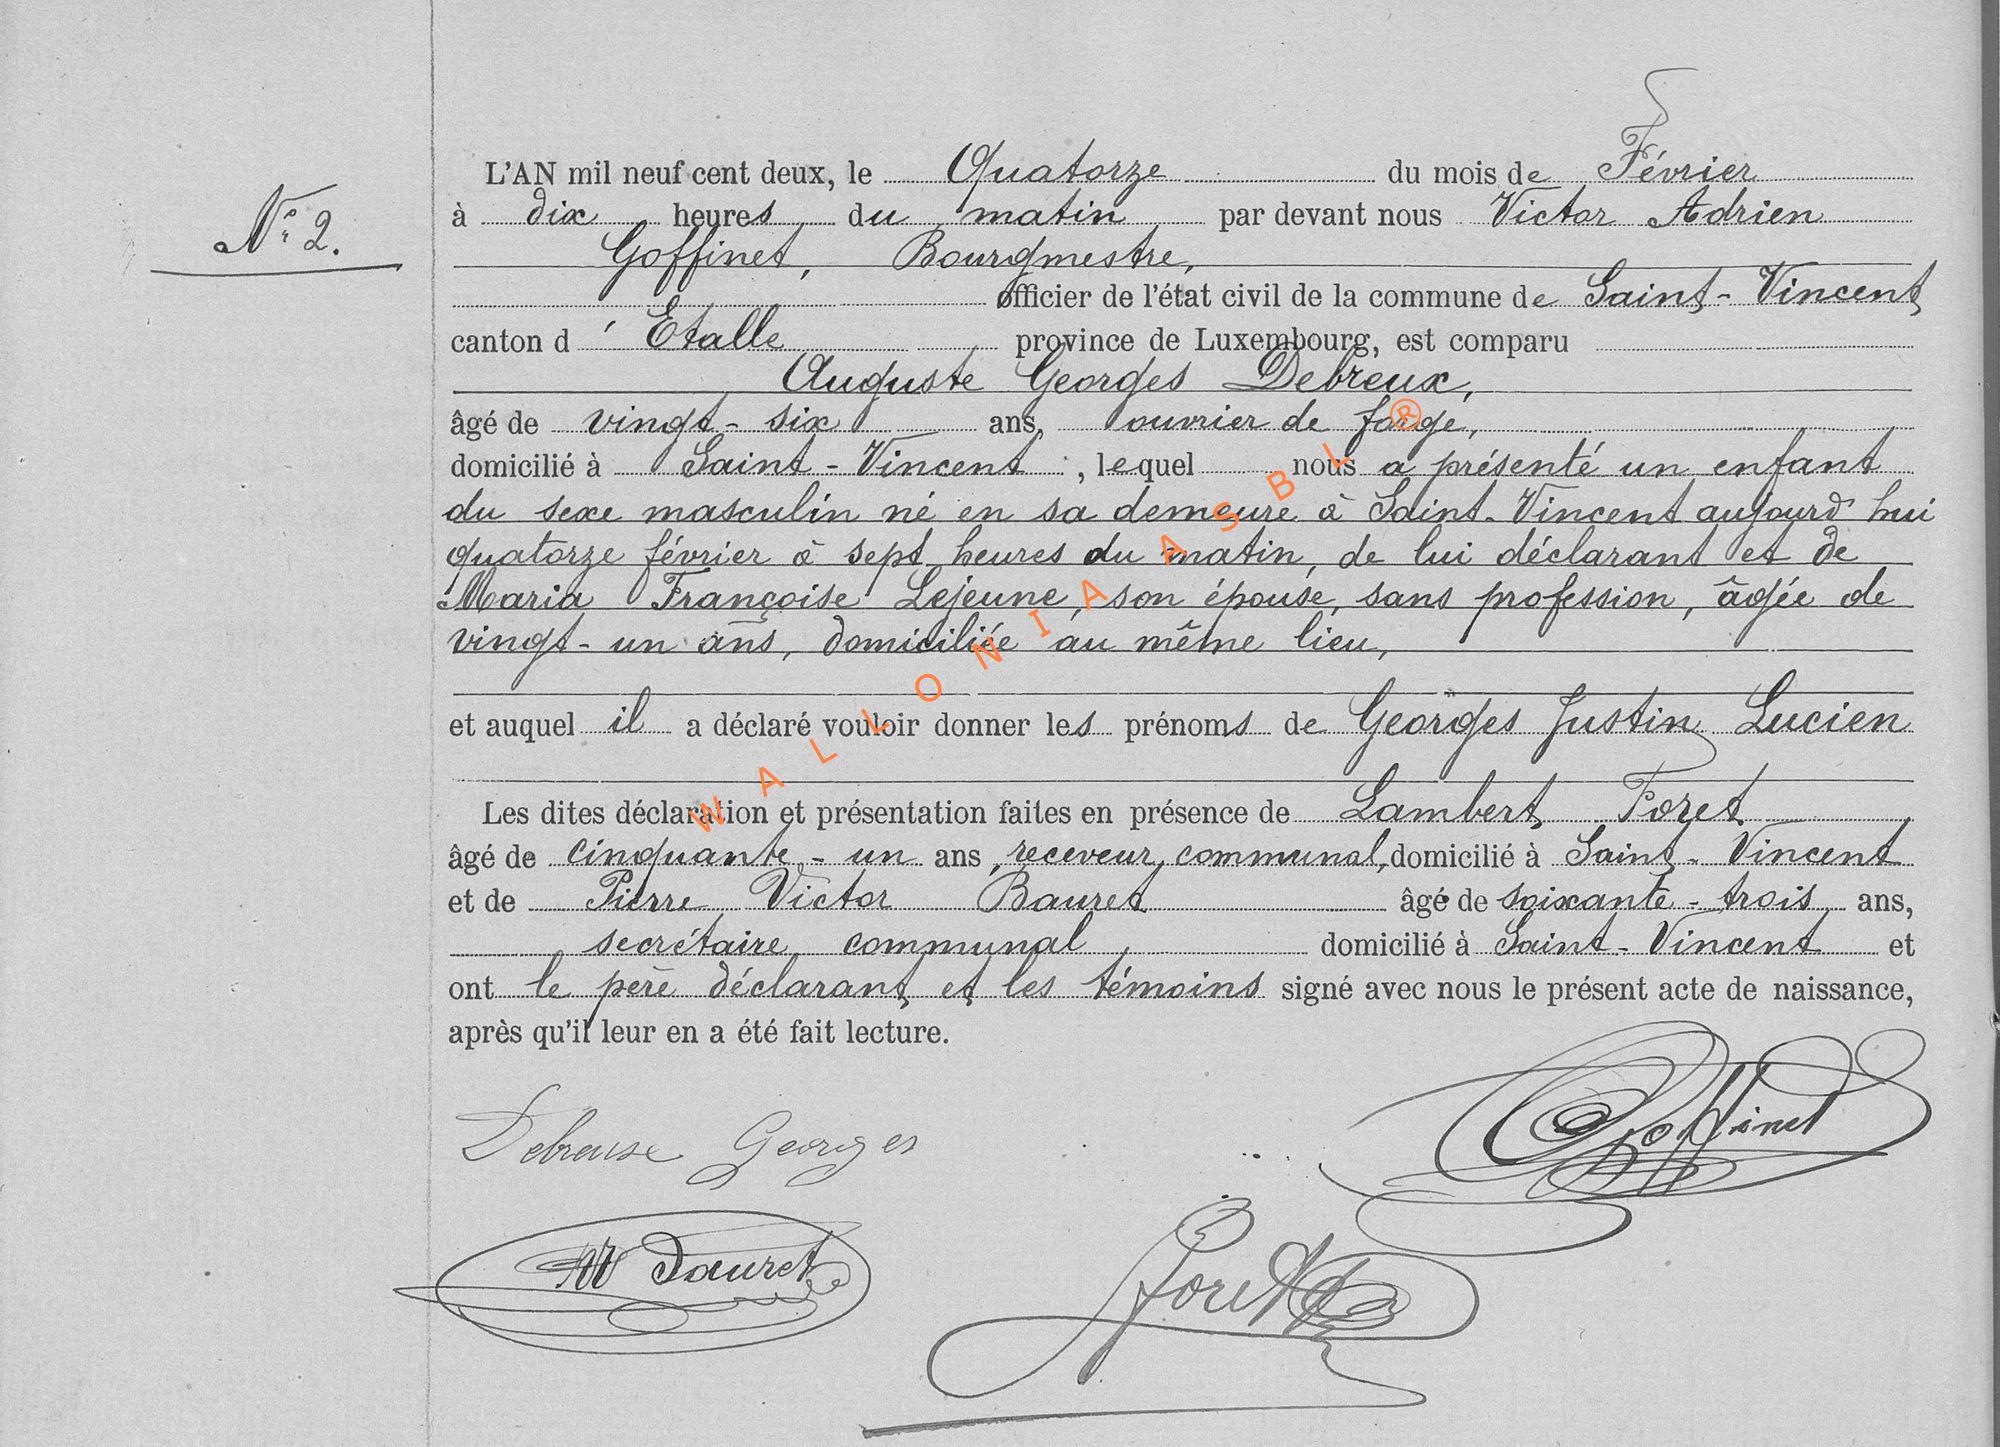 L'AN mil neuf cent deux, le Quatorze du mois de Février
N° 2.
à dix heures du matin par devant nous Victor Adrien
Goffinet, Bourgmestre,
officier de l'état civil de la commune de Saint-Vincent
canton d'Etalle province de Luxembourg, est comparu
Auguste Georges Debreux,
âgé de vingt-six ans, ouvrier de forge,
domicilié à Saint-Vincent, lequel nous a présenté un enfant
du sexe masculin né en sa demeure à Saint-Vincent aujourd'hui
quatorze février à sept heures du matin, de lui déclarant et de
Maria Françoise Lejeune, son épouse, sans profession, âgée de
vingt-un ans, domiciliée au même lieu,
et auquel il a déclaré vouloir donner les prénoms de Georges Justin Lucien
Les dites déclaration et présentation faites en présence de Lambert Foret
âgé de cinquante-un ans, receveur communal, domicilié à Saint-Vincent
et de Pierre Victor Bauret âgé de soixante-trois ans,
secrétaire communal, domicilié à Saint-Vincent et
ont le père déclarant et les témoins signé avec nous le présent acte de naissance,
après qu'il leur en a été fait lecture.
Goffinet
Debreuse Georges
Bauret
Foret
WALLONIA ASBL ®